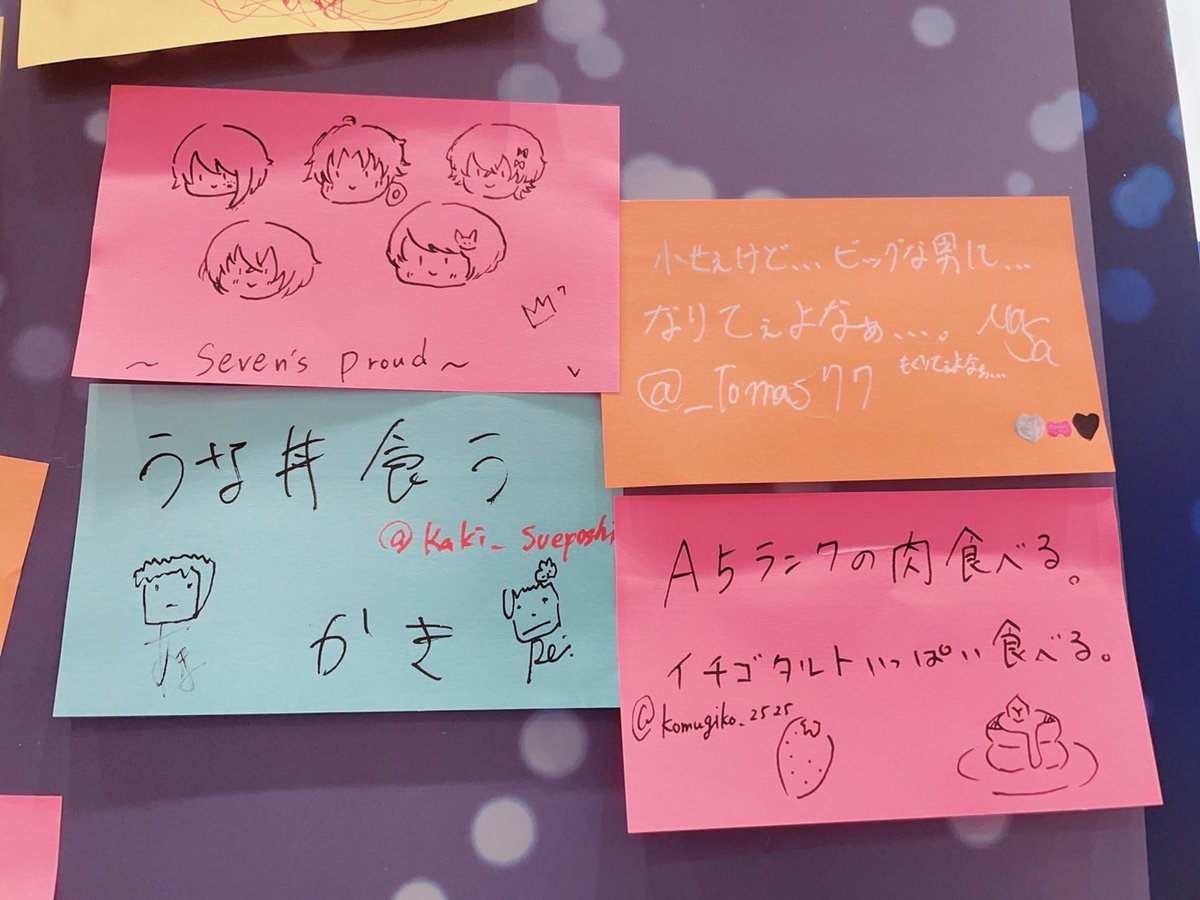 ~ Seven's proud ~
小せぇけど... ビッグな男に...
なりてぇよなぁ....。
@_Tomas77
もぐりてぇよなぁ...
うな丼食う
@Kaki_Sueyoshi
かき
Rei
A5ランクの肉食べる。
イチゴタルトいっぱい食べる。
@komugiko_2525